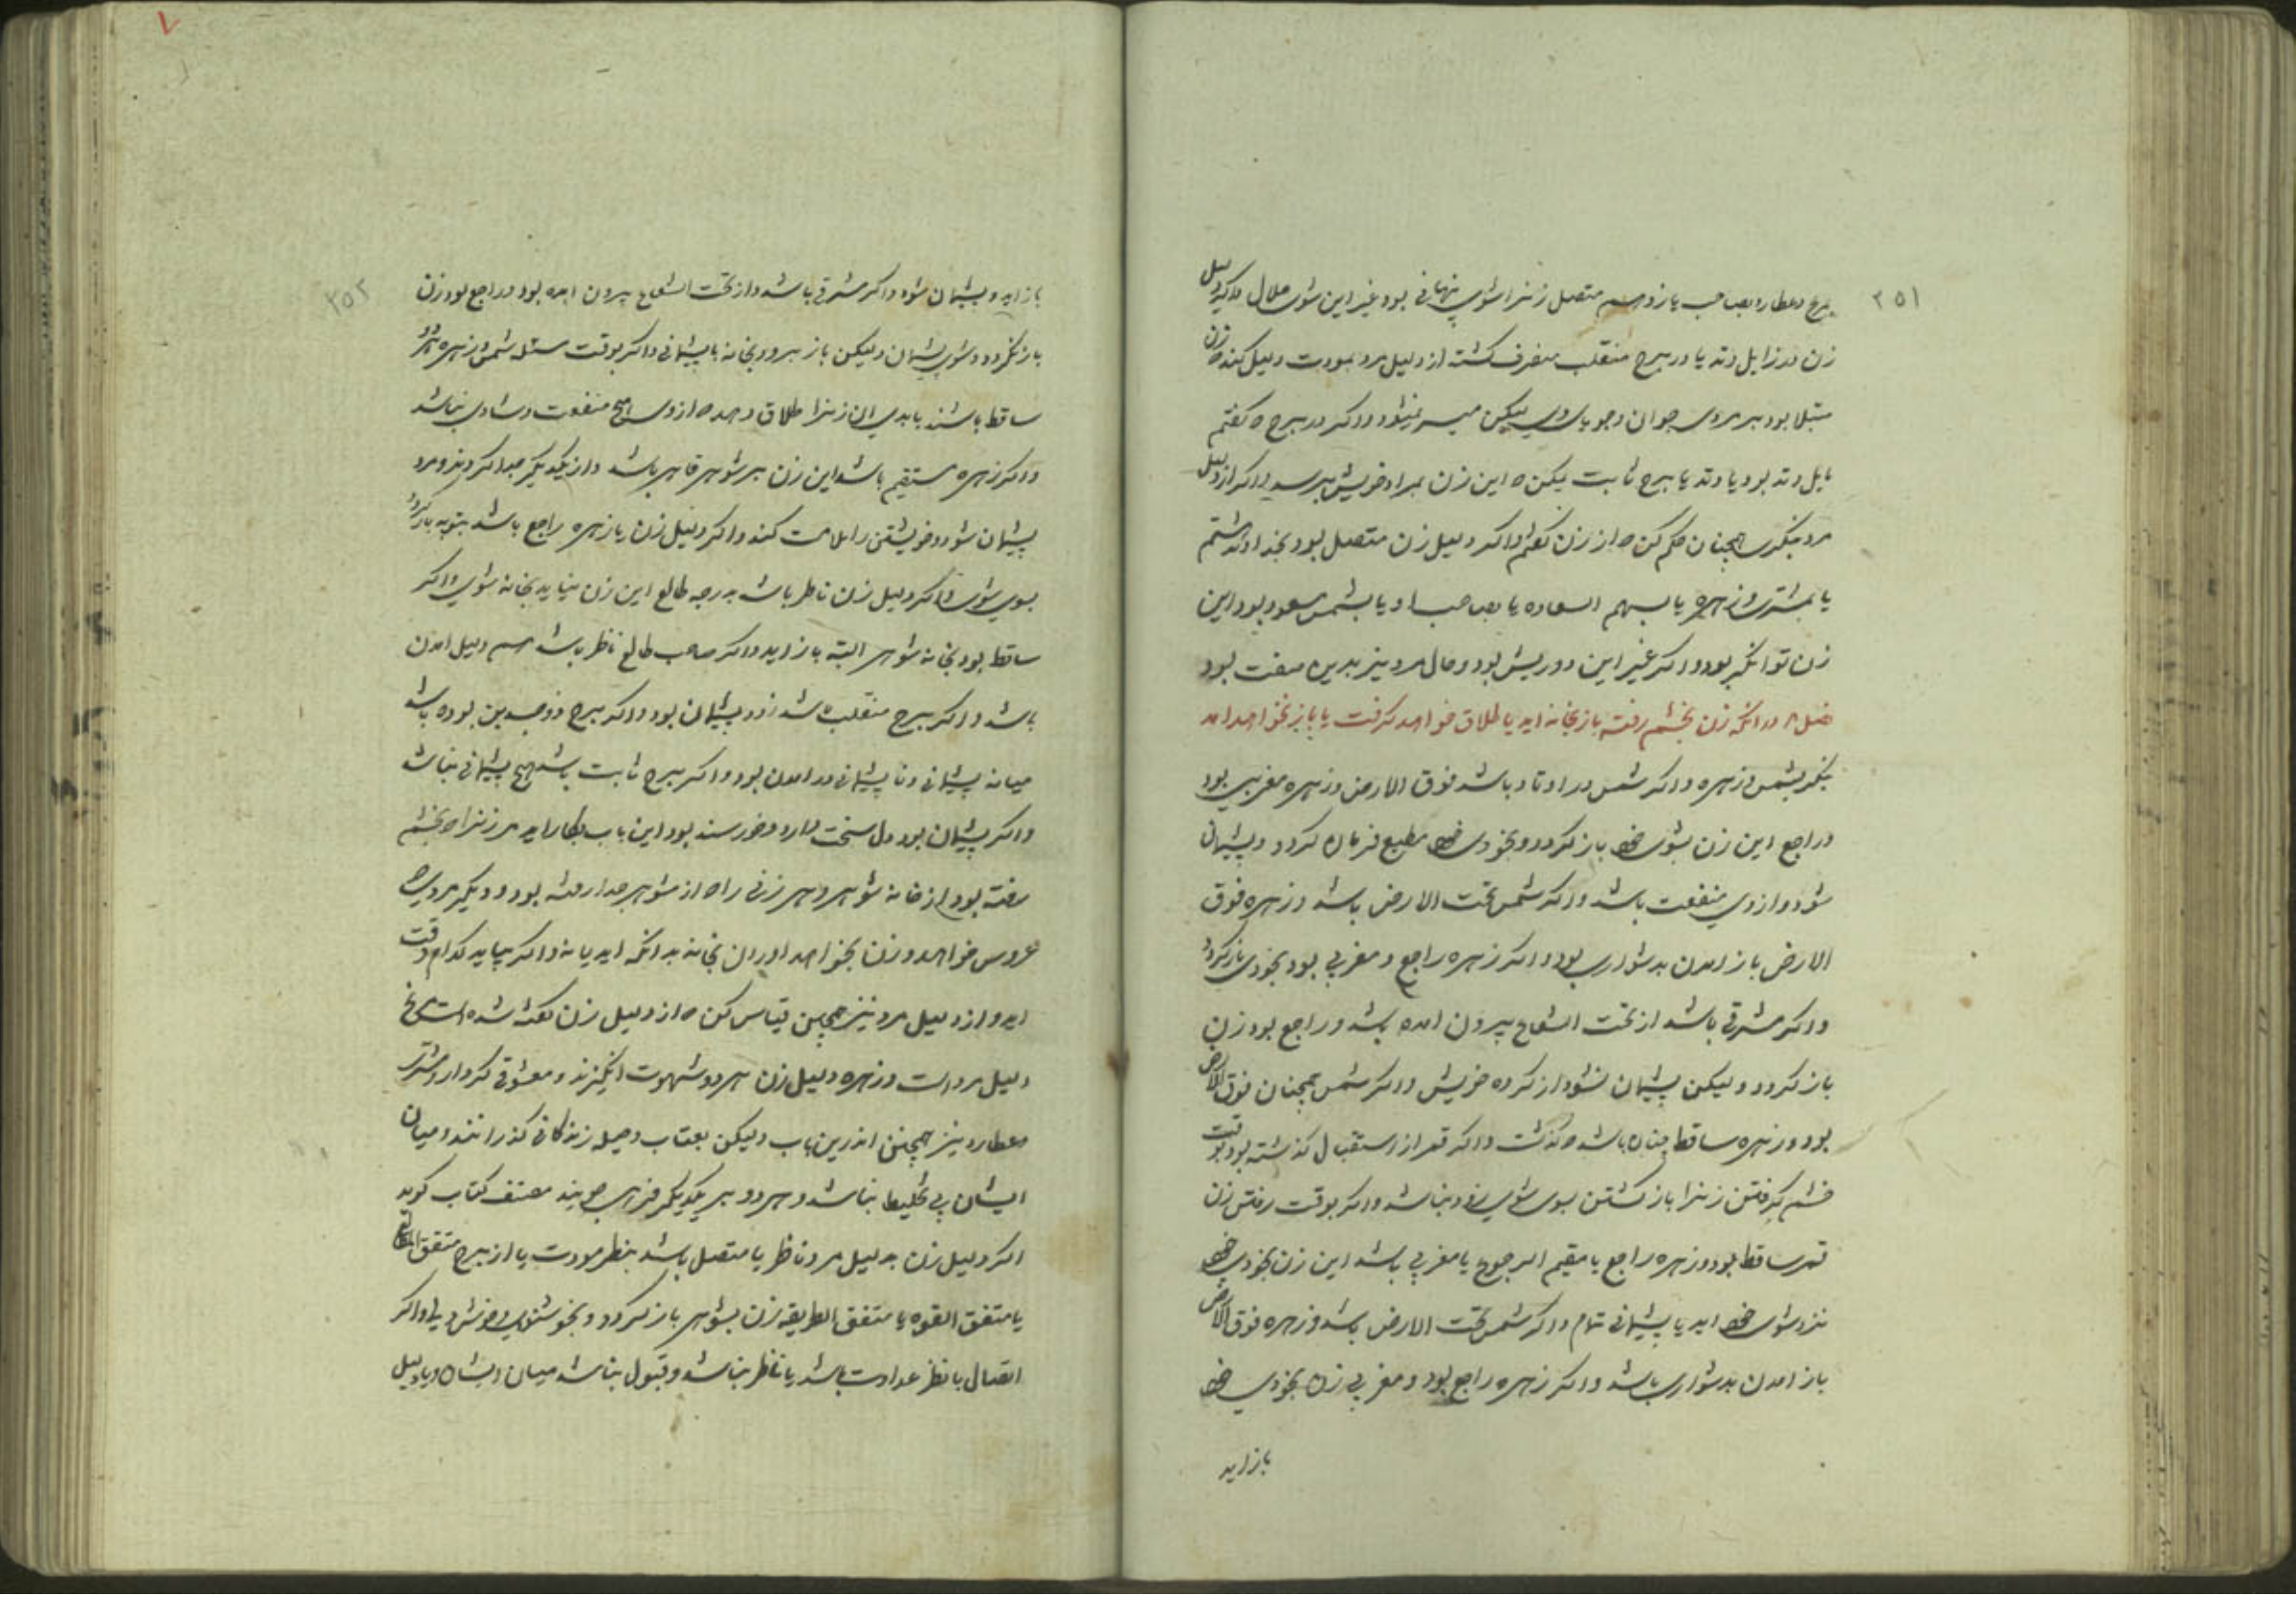 ۲۵۱
برج و عطارد بصاحب یازدهم متصل زنرا شوی پنهانی بود غیر این شوی حلال و اگر دلیل
زن در زایل وتد یا در برج منقلب منصرف گشته از دلیل مرد بمودت دلیل کند که زن
مبتلا بود بر مردی جوان و جویای وی لیکن میسر نشود و اگر در برج که گفتم
مایل وتد بود یا وتد یا برج ثابت لیکن که این زن بمراد خویش برسد و اگر از دلیل
مرد بنگری همچنان حکم کن که از زن گفتم و اگر دلیل زن متصل بود بخداوند هشتم
یا بمشتری و زهره یا بسهم السعاده یا بصاحب او یا بشمس مسعود بود این
زن توانگر بود و اگر غیر این درویش بود و حال مرد نیز بدین صفت بود
فصل ۸ در انکه زن بخشم رفته باز بخانه اید یا طلاق خواهد گرفت یا باز نخواهد امد
بنگر بشمس و زهره و اگر شمس در اوتاد باشد فوق الارض و زهره مغربی بود
و راجع این زن بشوی خود باز گردد و بخودی خود مطیع فرمان گردد و پشیمان
شود و از وی منفعت باشد و اگر شمس تحت الارض باشد و زهره فوق
الارض باز امدن بدشواری بود و اگر زهره راجع و مغربی بود بخودی بازگردد
و اگر مشرقی باشد از تحت الشعاع بیرون امده باشد و راجع بود زن
باز گردد و لیکن پشیمان نشود از کرده خویش و اگر شمس همچنان فوق الارض
بود و زهره ساقط چنان باشد که گذشت و اگر قمر از استقبال گذشته بود بوقت
خشم گرفتن زنرا باز گشتن بسوی شوی زود نباشد و اگر بوقت رفتن زن
قمر ساقط بود و زهره راجع یا مقیم الرجوع یا مغربی باشد این زن بخودی خود
نزد شوی خود اید با پشیمانی تمام و اگر شمس تحت الارض باشد و زهره فوق الارض
باز امدن بدشواری باشد و اگر زهره راجع بود و مغربی زن بخودی خود
باز اید
۲۵۲
باز اید و پشیمان شود و اگر مشرقی باشد و از تحت الشعاع بیرون امده بود و راجع بود زن
باز نگردد و شوی پشیمان و لیکن باز برود بخانه با پشیمانی و اگر بوقت مسئله شمس و زهره هر دو
ساقط باشند یا بدی ان زنرا طلاق دهد که از وی هیچ منفعت و شادی نباشد
و اگر زهره مستقیم باشد این زن بر شوهر قاهر باشد و از یکدیگر جدا گردند و مرد
پشیمان شود و خویشتن را ملامت کند و اگر دلیل زن یا زهره راجع باشد بتوبه باز گردد
بسوی شوی و اگر دلیل زن ناظر باشد بدرجه طالع این زن بیاید بخانه شوی و اگر
ساقط بود بخانه شوهر البته باز اید و اگر صاحب طالع ناظر باشد هم دلیل امدن
باشد و اگر برج منقلب باشد زود پشیمان بود و اگر برج ذوجسدین بوده باشد
میانه پشیمانی و نا پشیمانی در امدن بود و اگر برج ثابت باشد هیچ پشیمانی نباشد
و اگر پشیمان بود دل سخت دارد و خورسند بود این باب بکار اید مر زنرا که بخشم
رفته بود از خانه شوهر و هر زنی را که از شوهر جدا رفته بود و دیگر مردی که
عروس خواهد و زن بخواهد اوردن بخانه بدانکه اید یا نه و اگر بیاید کدام وقت
اید و از دلیل مرد نیز همچنین قیاس کن که از دلیل زن گفته شده است مریخ
دلیل مرد است و زهره دلیل زن هر دو شهوت انگیزند و معشوقی کردار و مشتری
و عطارد نیز همچنین اندرین باب و لیکن بعتاب و حیله زندگانی گذرانند و میان
ایشان بی تخلیط نباشد و هر دو بر یکدیگر فریب جویند مصنف کتاب گوید
اگر دلیل زن بدلیل مرد ناظر یا متصل باشد بنظر مودت یا از برج متفق المطالع
یا متفق القوه یا متفق الطریقه زن بشوهر باز گردد و بخوشنودی و خوشدلی و اگر
اتصال با نظر عداوت باشد یا ناظر نباشد و قبول نباشد میان ایشان و یا دلیل